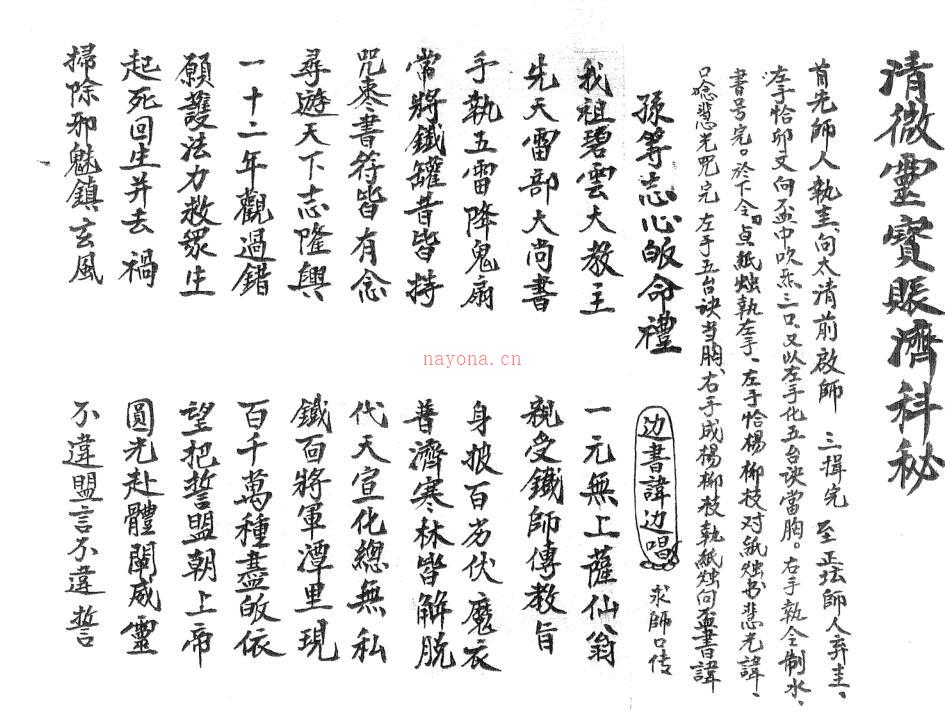 清微靈寶賑濟科秘
首先師人執圭、向太清前啟師 三揖完 至正坛師人弃圭、
左手恰卯文向盃中吹炁三口、又以左手化五台诀當胸。右手执令制水、
書号完。於下令、点紙烛執左手、左手恰楊柳枝对紙烛书悲光諱、
口念悲光咒完 左手五台诀当胸、右手成楊柳枝執紙烛向盃書諱
孫等志心皈命禮 边書諱边唱 求師口传
我祖碧雲大教主 一元無上薩仙翁
先天雷部大尚書 親受鐵師傳教旨
手執五雷降鬼扇 身披百衲伏魔衣
常將鐵罐昔皆持 普濟寒林皆解脱
咒棗書符皆有念 代天宣化總無私
尋遊天下志隆興 鐵面將軍潭里現
一十二年觀過錯 百千萬種盡皈依
願護法力救眾生 望把誓盟朝上帝
起死回生并去禍 圓光赴體闡威靈
掃除邪魅鎮玄風 不違盟言不違誓
nayona.cn